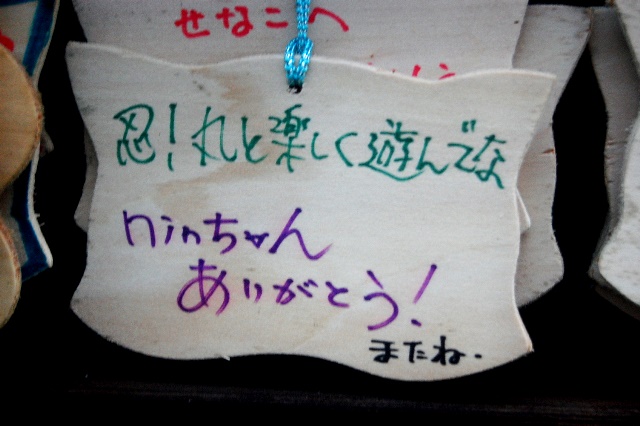 せなこへ
忍!丸と楽しく遊んでな
ninちゃん
ありがとう!
またね.